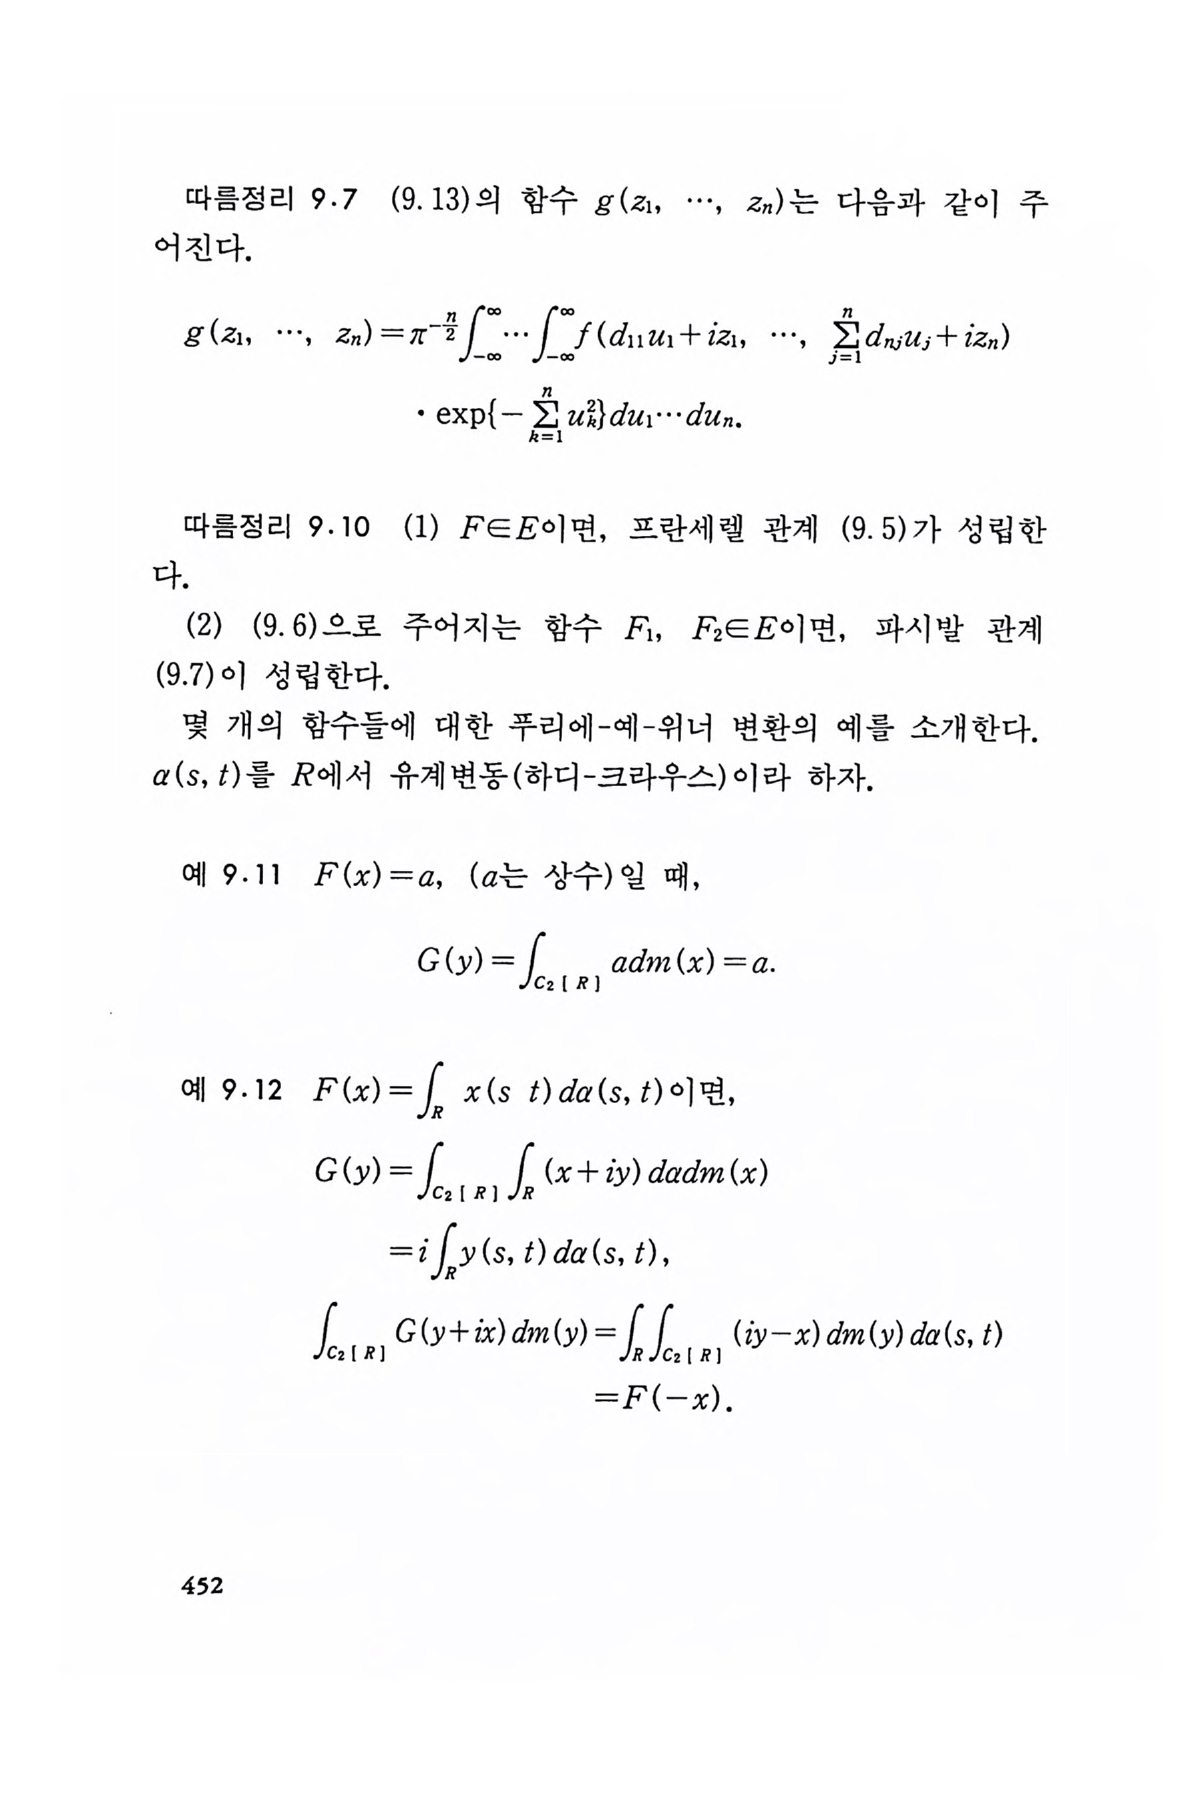 따름정리 9.7 (9.13)의 함수 g(z₁, ⋯, zₙ)는 다음과 같이 주
어진다.
g(z₁, ⋯, zₙ)=π^{-n/2}∫_{-∞}^{∞}⋯∫_{-∞}^{∞}f(d₁₁u₁+iz₁, ⋯, ∑_{j=1}^{n}d_{nj}u_j+izₙ)
· exp{-∑_{k=1}^{n}u_k^2}du₁⋯duₙ.
따름정리 9.10 (1) F∈E이면, 프란세렐 관계 (9.5)가 성립한
다.
(2) (9.6)으로 주어지는 함수 F₁, F₂∈E이면, 파시발 관계
(9.7)이 성립한다.
몇 개의 함수들에 대한 푸리에-예-위너 변환의 예를 소개한다.
α(s, t)를 R에서 유계변동(하디-크라우스)이라 하자.
예 9.11 F(x)=a, (a는 상수)일 때,
G(y)=∫_{C₂[R]} adm(x)=a.
예 9.12 F(x)=∫_R x(s t)dα(s, t)이면,
G(y)=∫_{C₂[R]}∫_R(x+iy)dαdm(x)
=i∫_R y(s, t)dα(s, t),
∫_{C₂[R]}G(y+ix)dm(y)=∫_R∫_{C₂[R]}(iy-x)dm(y)dα(s, t)
=F(-x).
452